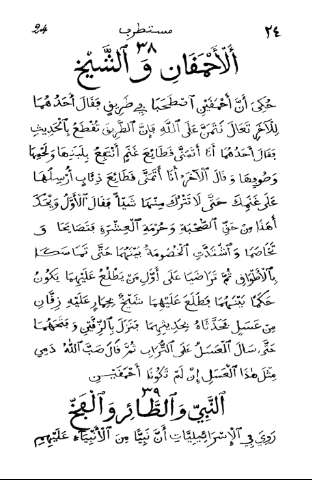 ٢٤ مستطرب 24
٣٨
أَلْأَحْمَقَانِ وَ ٱلشَّيْخ
حُكِيَ أَنَّ أَحْمَقَيْنِ ٱصْطَحَبَا فِي طَرِيقٍ فَقَالَ أَحَدُهُمَا
لِلْآخَرِ تَعَالَ نَتَمَنَّ عَلَى ٱللَّهِ فَإِنَّ ٱلطَّرِيقَ تُقْطَعُ بِٱلْحَدِيثِ
فَقَالَ أَحَدُهُمَا أَنَا أَتَمَنَّى قَطَائِعَ غَنَمٍ أَنْتَفِعُ بِلَبَنِهَا وَلَحْمِهَا
وَصُوفِهَا وَ قَالَ ٱلْآخَرُ أَنَا أَتَمَنَّى قَطَائِعَ ذِئَابٍ أُرْسِلُهَا
عَلَى غَنَمِكَ حَتَّى لَا تَتْرُكَ مِنْهَا شَيْأً فَقَالَ ٱلْأَوَّلُ وَيْحَكَ
أَهَذَا مِنْ حَقِّ ٱلصُّحْبَةِ وَ حُرْمَةِ ٱلْعِشْرَةِ فَتَصَايَحَا وَ
تَخَاصَمَا وَ ٱشْتَدَّتِ ٱلْخُصُومَةُ بَيْنَهُمَا حَتَّى تَمَاسَكَا
بِٱلْأَطْوَاقِ ثُمَّ تَرَاضَيَا عَلَى أَوَّلِ مَنْ يَطْلُعُ عَلَيْهِمَا يَكُونُ
حَكَمًا بَيْنَهُمَا فَطَلَعَ عَلَيْهِمَا شَيْخٌ بِحِمَارٍ عَلَيْهِ زِقَّانِ
مِنْ عَسَلٍ فَحَدَّثَاهُ بِحَدِيثِهِمَا فَنَزَلَ بِٱلزِّقَّيْنِ وَ فَتَحَهُمَا
حَتَّى سَالَ ٱلْعَسَلُ عَلَى ٱلتُّرَابِ ثُمَّ قَالَ صَبَّ ٱللَّهُ دَمِي
مِثْلَ هَذَا ٱلْعَسَلِ إِنْ لَمْ تَكُونَا أَحْمَقَيْنِ
٣٩
ٱلنَّبِيُّ وَ ٱلطَّائِرُ وَ ٱلْفَخّ
رُوِيَ فِي ٱلْإِسْرَائِيلِيَّاتِ أَنَّ نَبِيًّا مِنَ ٱلْأَنْبِيَاءِ عَلَيْهِمِ